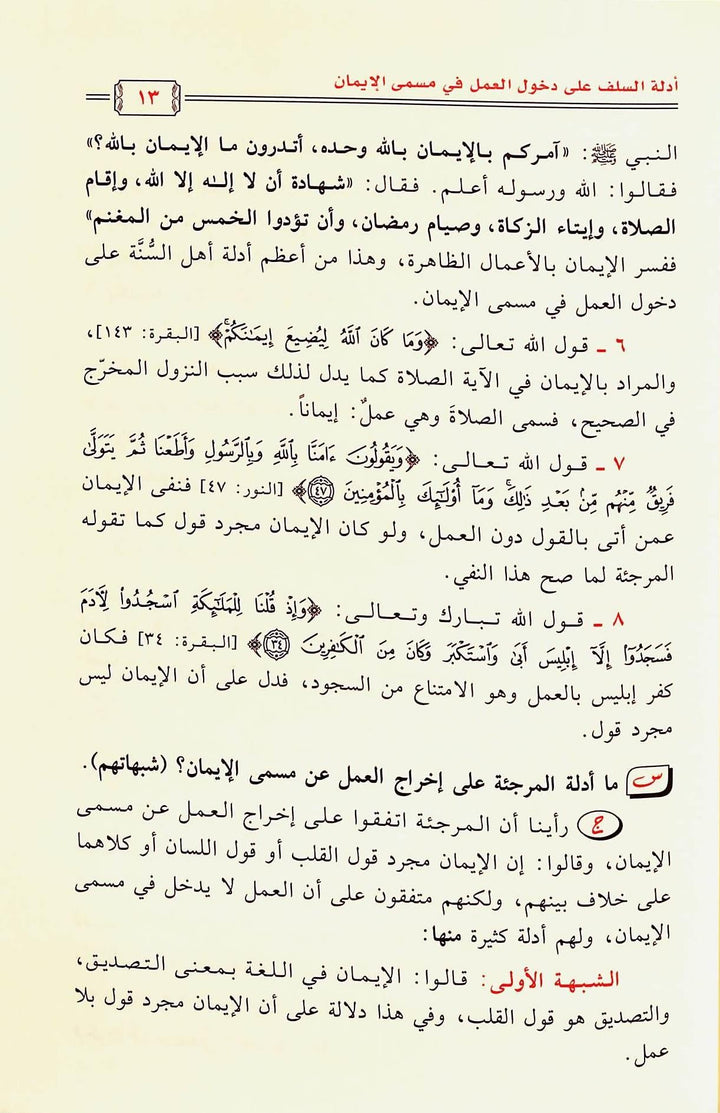 أدلة السلف على دخول العمل في مسمى الإيمان
١٣
النبي ﷺ: «آمركم بالإيمان بالله وحده، أتدرون ما الإيمان بالله؟»
فقالوا: الله ورسوله أعلم. فقال: «شهادة أن لا إله إلا الله، وإقام
الصلاة، وإيتاء الزكاة، وصيام رمضان، وأن تؤدوا الخمس من المغنم»
ففسر الإيمان بالأعمال الظاهرة، وهذا من أعظم أدلة أهل السُّنَّة على
دخول العمل في مسمى الإيمان.
٦ ـ قول الله تعالى: ﴿وَمَا كَانَ ٱللَّهُ لِيُضِيعَ إِيمَـٰنَكُمْۚ﴾ [البقرة: ١٤٣]،
والمراد بالإيمان في الآية الصلاة كما يدل لذلك سبب النزول المخرّج
في الصحيح، فسمى الصلاةَ وهي عملٌ: إيماناً.
٧ ـ قول الله تعالى: ﴿وَيَقُولُونَ ءَامَنَّا بِٱللَّهِ وَبِٱلرَّسُولِ وَأَطَعْنَا ثُمَّ يَتَوَلَّىٰ
فَرِيقٌ مِّنْهُم مِّنۢ بَعْدِ ذَٰلِكَۚ وَمَآ أُو۟لَـٰٓئِكَ بِٱلْمُؤْمِنِينَ ٤٧﴾ [النور: ٤٧] فنفى الإيمان
عمن أتى بالقول دون العمل، ولو كان الإيمان مجرد قول كما تقوله
المرجئة لما صح هذا النفي.
٨ ـ قول الله تبارك وتعالى: ﴿وَإِذْ قُلْنَا لِلْمَلَـٰٓئِكَةِ ٱسْجُدُوا۟ لِـَٔادَمَ
فَسَجَدُوٓا۟ إِلَّآ إِبْلِيسَ أَبَىٰ وَٱسْتَكْبَرَ وَكَانَ مِنَ ٱلْكَـٰفِرِينَ ٣٤﴾ [البقرة: ٣٤] فكان
كفر إبليس بالعمل وهو الامتناع من السجود، فدل على أن الإيمان ليس
مجرد قول.
س ما أدلة المرجئة على إخراج العمل عن مسمى الإيمان؟ (شبهاتهم).
ج رأينا أن المرجئة اتفقوا على إخراج العمل عن مسمى
الإيمان، وقالوا: إن الإيمان مجرد قول القلب أو قول اللسان أو كلاهما
على خلاف بينهم، ولكنهم متفقون على أن العمل لا يدخل في مسمى
الإيمان، ولهم أدلة كثيرة منها:
الشبهة الأولى: قالوا: الإيمان في اللغة بمعنى التصديق،
والتصديق هو قول القلب، وفي هذا دلالة على أن الإيمان مجرد قول بلا
عمل.